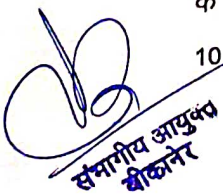 क
10
संभागीय आयुक्त
बीकानेर